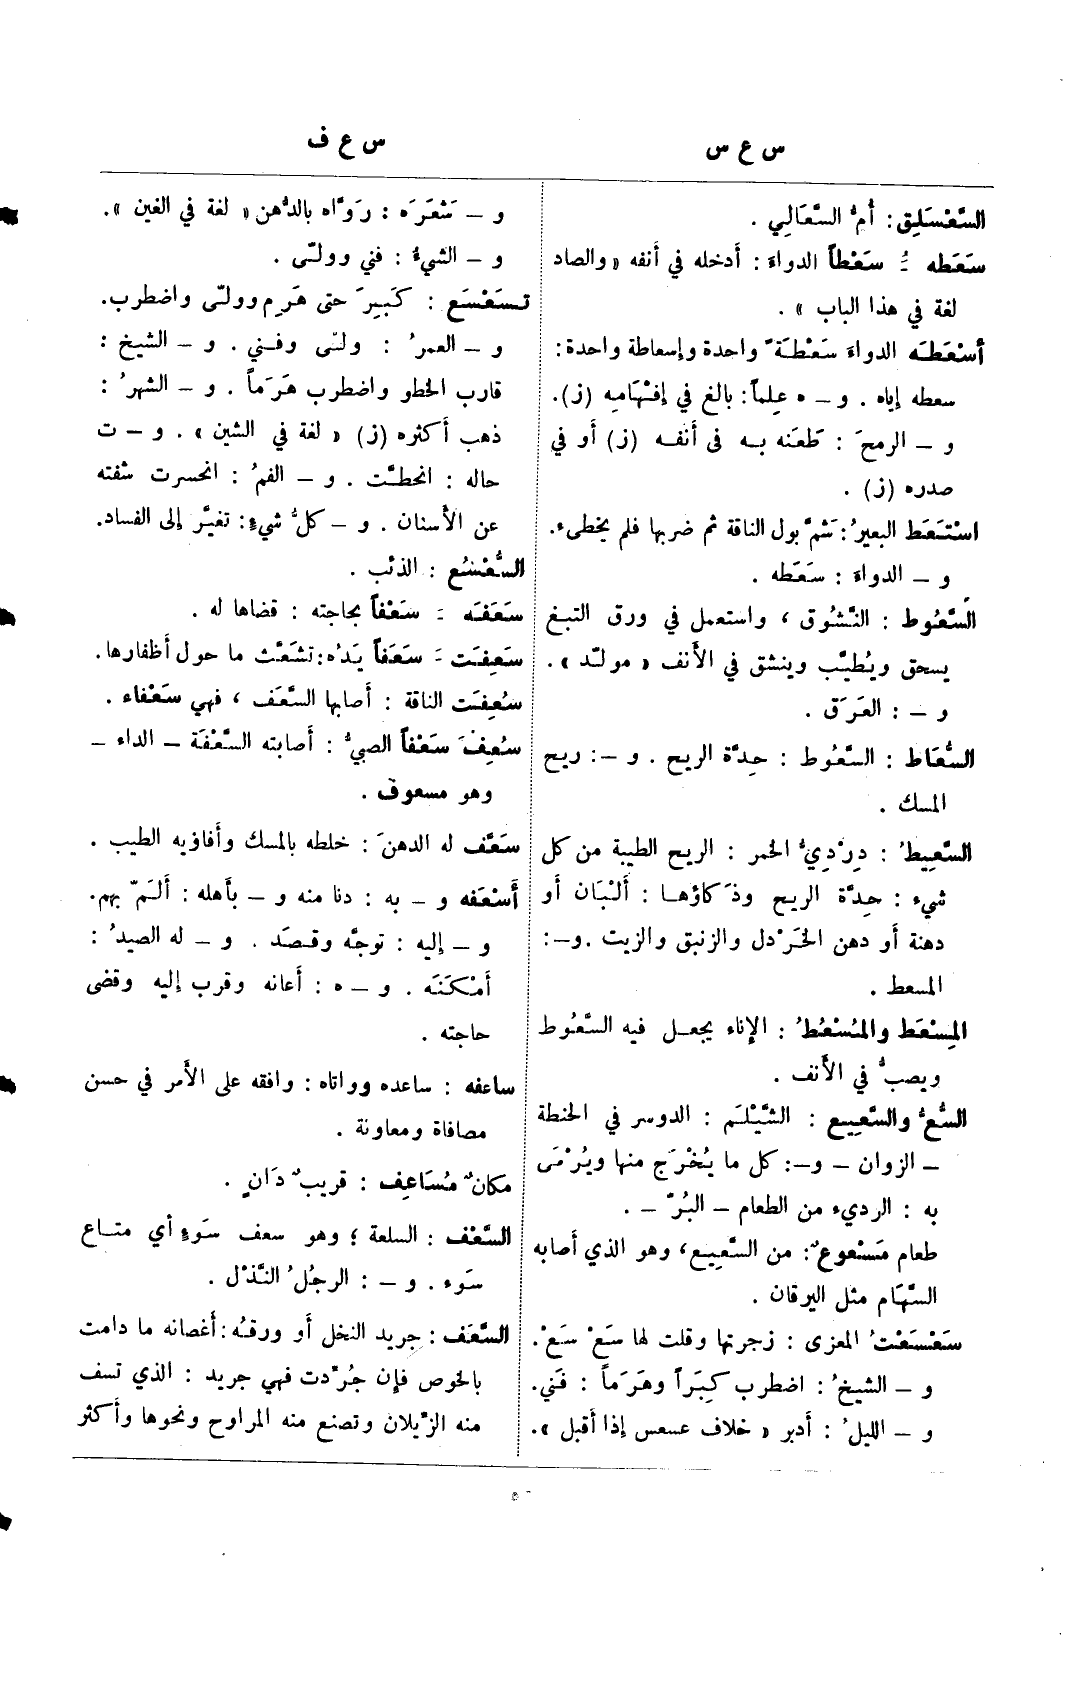 س ع س
السَّعْسَلِق: أُمُّ السَّعَالِي .
سَعَطَه ـُـَ سَعْطاً الدواءَ : أدخله في أنفه « والصاد
لغة في هذا الباب » .
أسْعَطَه الدواءَ سَعْطَةً واحدة وإسعاطة واحدة:
سعطه إياه . و – ه علماً: بالغ في إفْهَامِه (ز).
و – الرمحَ : طَعَنه بـه في أنفـه (ز) أو في
صدره (ز) .
اسْتَعَطَ البعيرُ: شمَّ بول الناقة ثم ضربها فلم يخطىء.
و – الدواءَ : سَعَطه .
السَّعُوط : النَّشُوق ، واستعمل في ورق التبغ
يسحق ويُطيَّب وينشق في الأنف « مولَّد ».
و – : العَرَق .
السُّعَاط : السَّعُوط : حِدَّة الريح . و –: ريح
المسك .
السَّعِيطُ : دِرْدِيُّ الخمر : الريح الطيبة من كل
شيء : حِدَّة الريح وذَكاؤهـا : ألْبَان أو
دهنة أو دهن الخَرْدل والزنبق والزيت .و–:
المسعط .
المِسْعَط والمُسْعُطُ : الإناء يجعـل فيه السَّعُوط
ويصبُّ في الأنف .
السُّعُّ والسَّعِيع : الشَّيْلَم : الدوسر في الحنطة
– الزوان – و–: كل ما يُخْرَج منها ويُرْمَى
به : الرديء من الطعام – البُرّ – .
طعام مَسْعوعٌ: من السَّعِيع، وهو الذي أصابه
السَّهَام مثل اليرقان .
سَعْسَعْتُ المعزى : زجرتها وقلت لها سَعْ سَعْ.
و – الشيخُ : اضطرب كِبَراً وهَرَماً : فَنِي.
و – الليلُ : أدبر « خلاف عسعس إذا أقبل ».
س ع ف
و – شَعَرَه : روَّاه بالدُّهن « لغة في الغين ».
و – الشيءُ : فني وولّى .
تـسَعْسَع : كَبِرَ حتى هَرِم وولّى واضطرب.
و – العمرُ : ولّى وفـني . و – الشيخ :
قارب الخطو واضطرب هَرَماً . و – الشهرُ :
ذهب أكثره (ز) « لغة في الشين » . و – ت
حاله : انحطَّت . و – الفمُ : انحسرت شفته
عن الأسنان . و – كلُّ شيءٍ: تغيَّر إلى الفساد.
السُّعْسُع : الذئب .
سَعَفَه ـَ سَعْفاً بحاجته : قضاها له .
سَعِفَت ـَ سَعَفاً يَدُه: تشعَّث ما حول أظفارها.
سُعِفَت الناقة : أصابها السَّعَف ، فهي سَعْفاء .
سُعِفَ سَعْفاً الصبيُّ : أصابته السَّعْفَة – الداء –
وهو مسعوف .
سَعَّف له الدهنَ : خلطه بالمسك وأفاوَيه الطيب .
أسْعَفه و – به : دنا منه و – بأهله : ألَمّ بهم.
و – إليه : توجَّه وقـصَد . و – له الصيدُ :
أمْكَنَه . و – ه : أعانه وقرب إليه وقضى
حاجته .
ساعفه : ساعده وواتاه : وافقه على الأمر في حسن
مصافاة ومعاونة .
مكانٌ مُسَاعِف : قريبٌ دَانٍ .
السَّعْف : السلعة ؛ وهو سعف سَوءٍ أي متـاع
سَوء . و – : الرجُلُ النَّذْل .
السَّعَف : جريد النخل أو ورقُه : أغصانه ما دامت
بالخوص فإن جُرِّدت فهي جريد : الذي تسف
منه الزِّبلان وتصنع منه المراوح ونحوها وأكثر